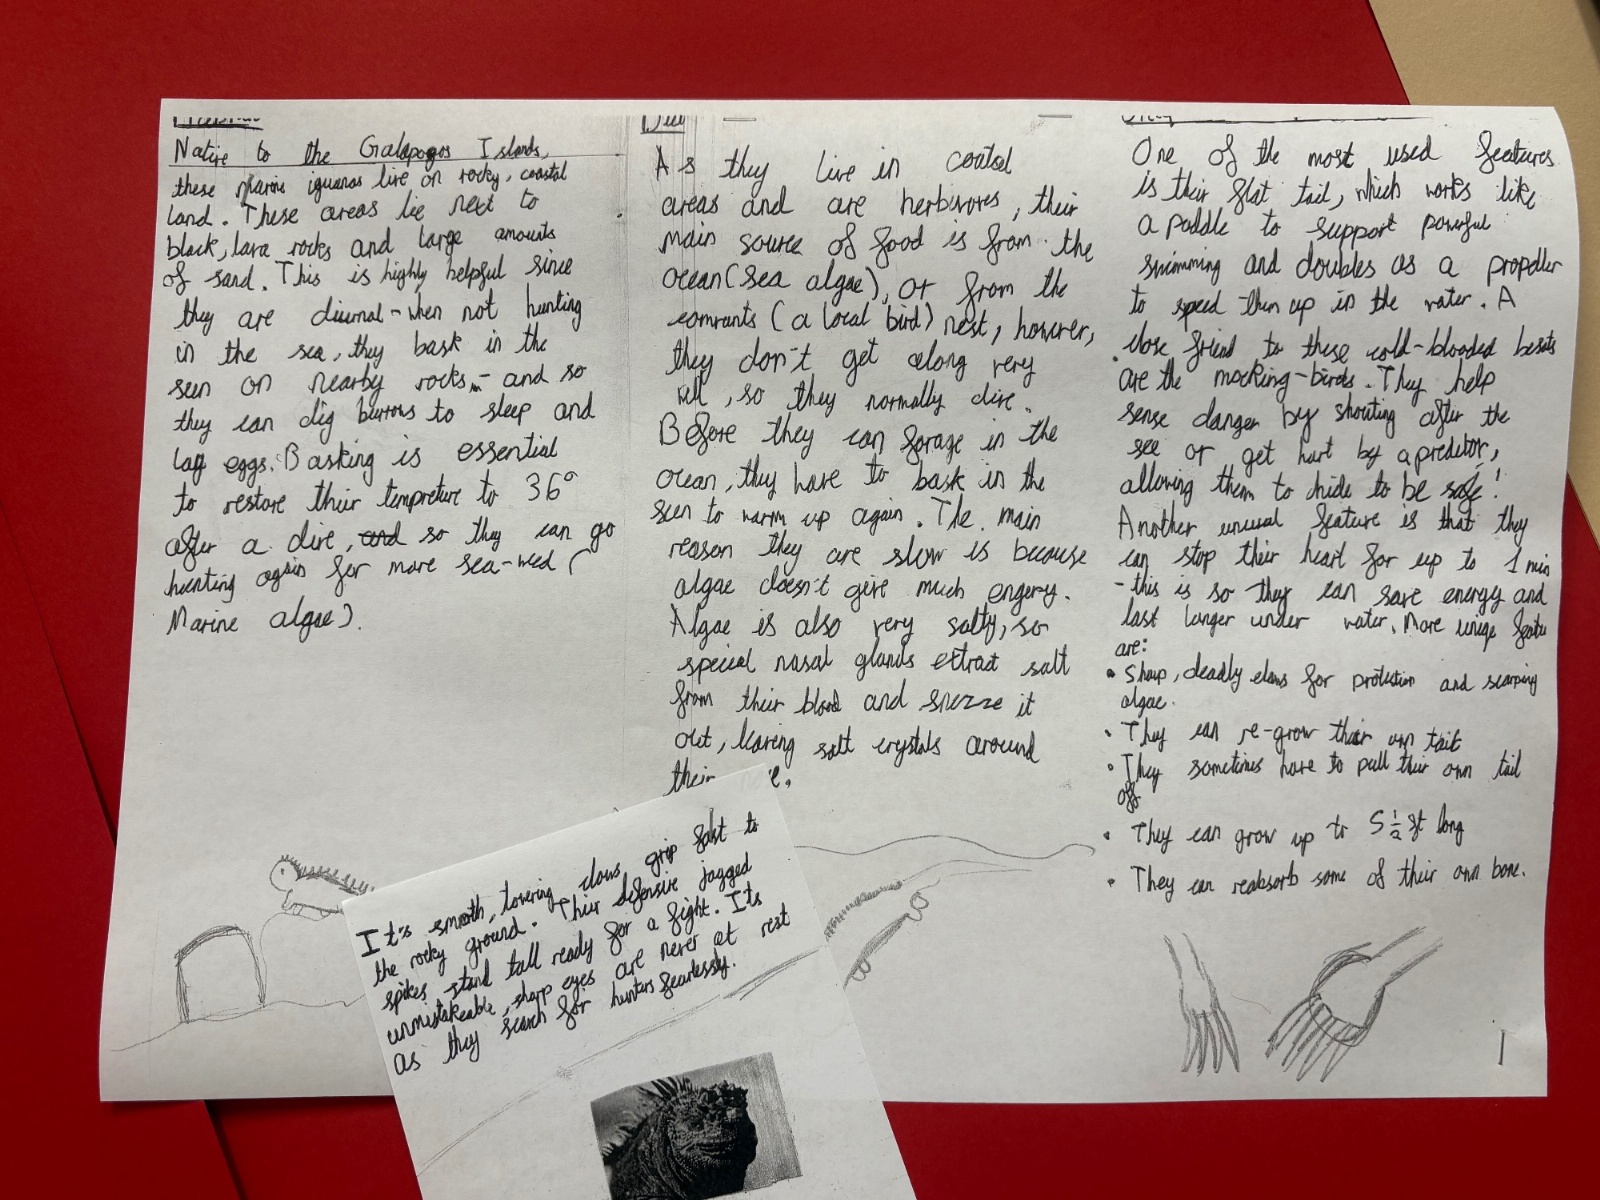 Habitat
Native to the Galapogos Islands,
these marine iguanas live on rocky, coastal
land. These areas lie next to
black, lava rocks and large amounts
of sand. This is highly helpful since
they are diurnal - when not hunting
in the sea, they bask in the
sun on nearby rocks - and so
they can dig burrows to sleep and
lay eggs. Basking is essential
to restore their tempreture to 36°
after a dive, and so they can go
hunting again for more sea-weed (
Marine algae).
Diet
As they live in coatsal
areas and are herbivores, their
main source of food is from the
ocean (sea algae), or from the
comrants (a local bird) nest, however,
they don't get along very
well, so they normally dive.
Before they can forage in the
ocean, they have to bask in the
sun to warm up again. The main
reason they are slow is because
algae doesn't give much engery.
Algae is also very salty, so
special nasal glands extract salt
from their blood and snezze it
out, leaving salt crystals around
their
One of the most used features
is their flat tail, which works like
a paddle to support powerful
swimming and doubles as a propeller
to speed them up in the water. A
close friend to these cold-blooded besats
are the mocking-birds. They help
sense danger by shouting after the
see or get hurt by a preditor,
allowing them to hide to be safe!
Another unusual feature is that they
can stop their heart for up to 1 min
- this is so they can save energy and
last longer under water. More uniqe featu
are:
• Sharp, deadly claws for protection and scarping
algae.
• They can re-grow their own tail
• They sometimes have to pull their own tail
off
• They can grow up to 5 1/2 ft long
• They can reabsorb some of their own bone.
It's smooth, towering claws grip fast to
the rocky ground. Thier defensive jagged
spikes stand tall ready for a fight. Its
unmistakeable, sharp eyes are never at rest
as they search for hunters fearlessly.